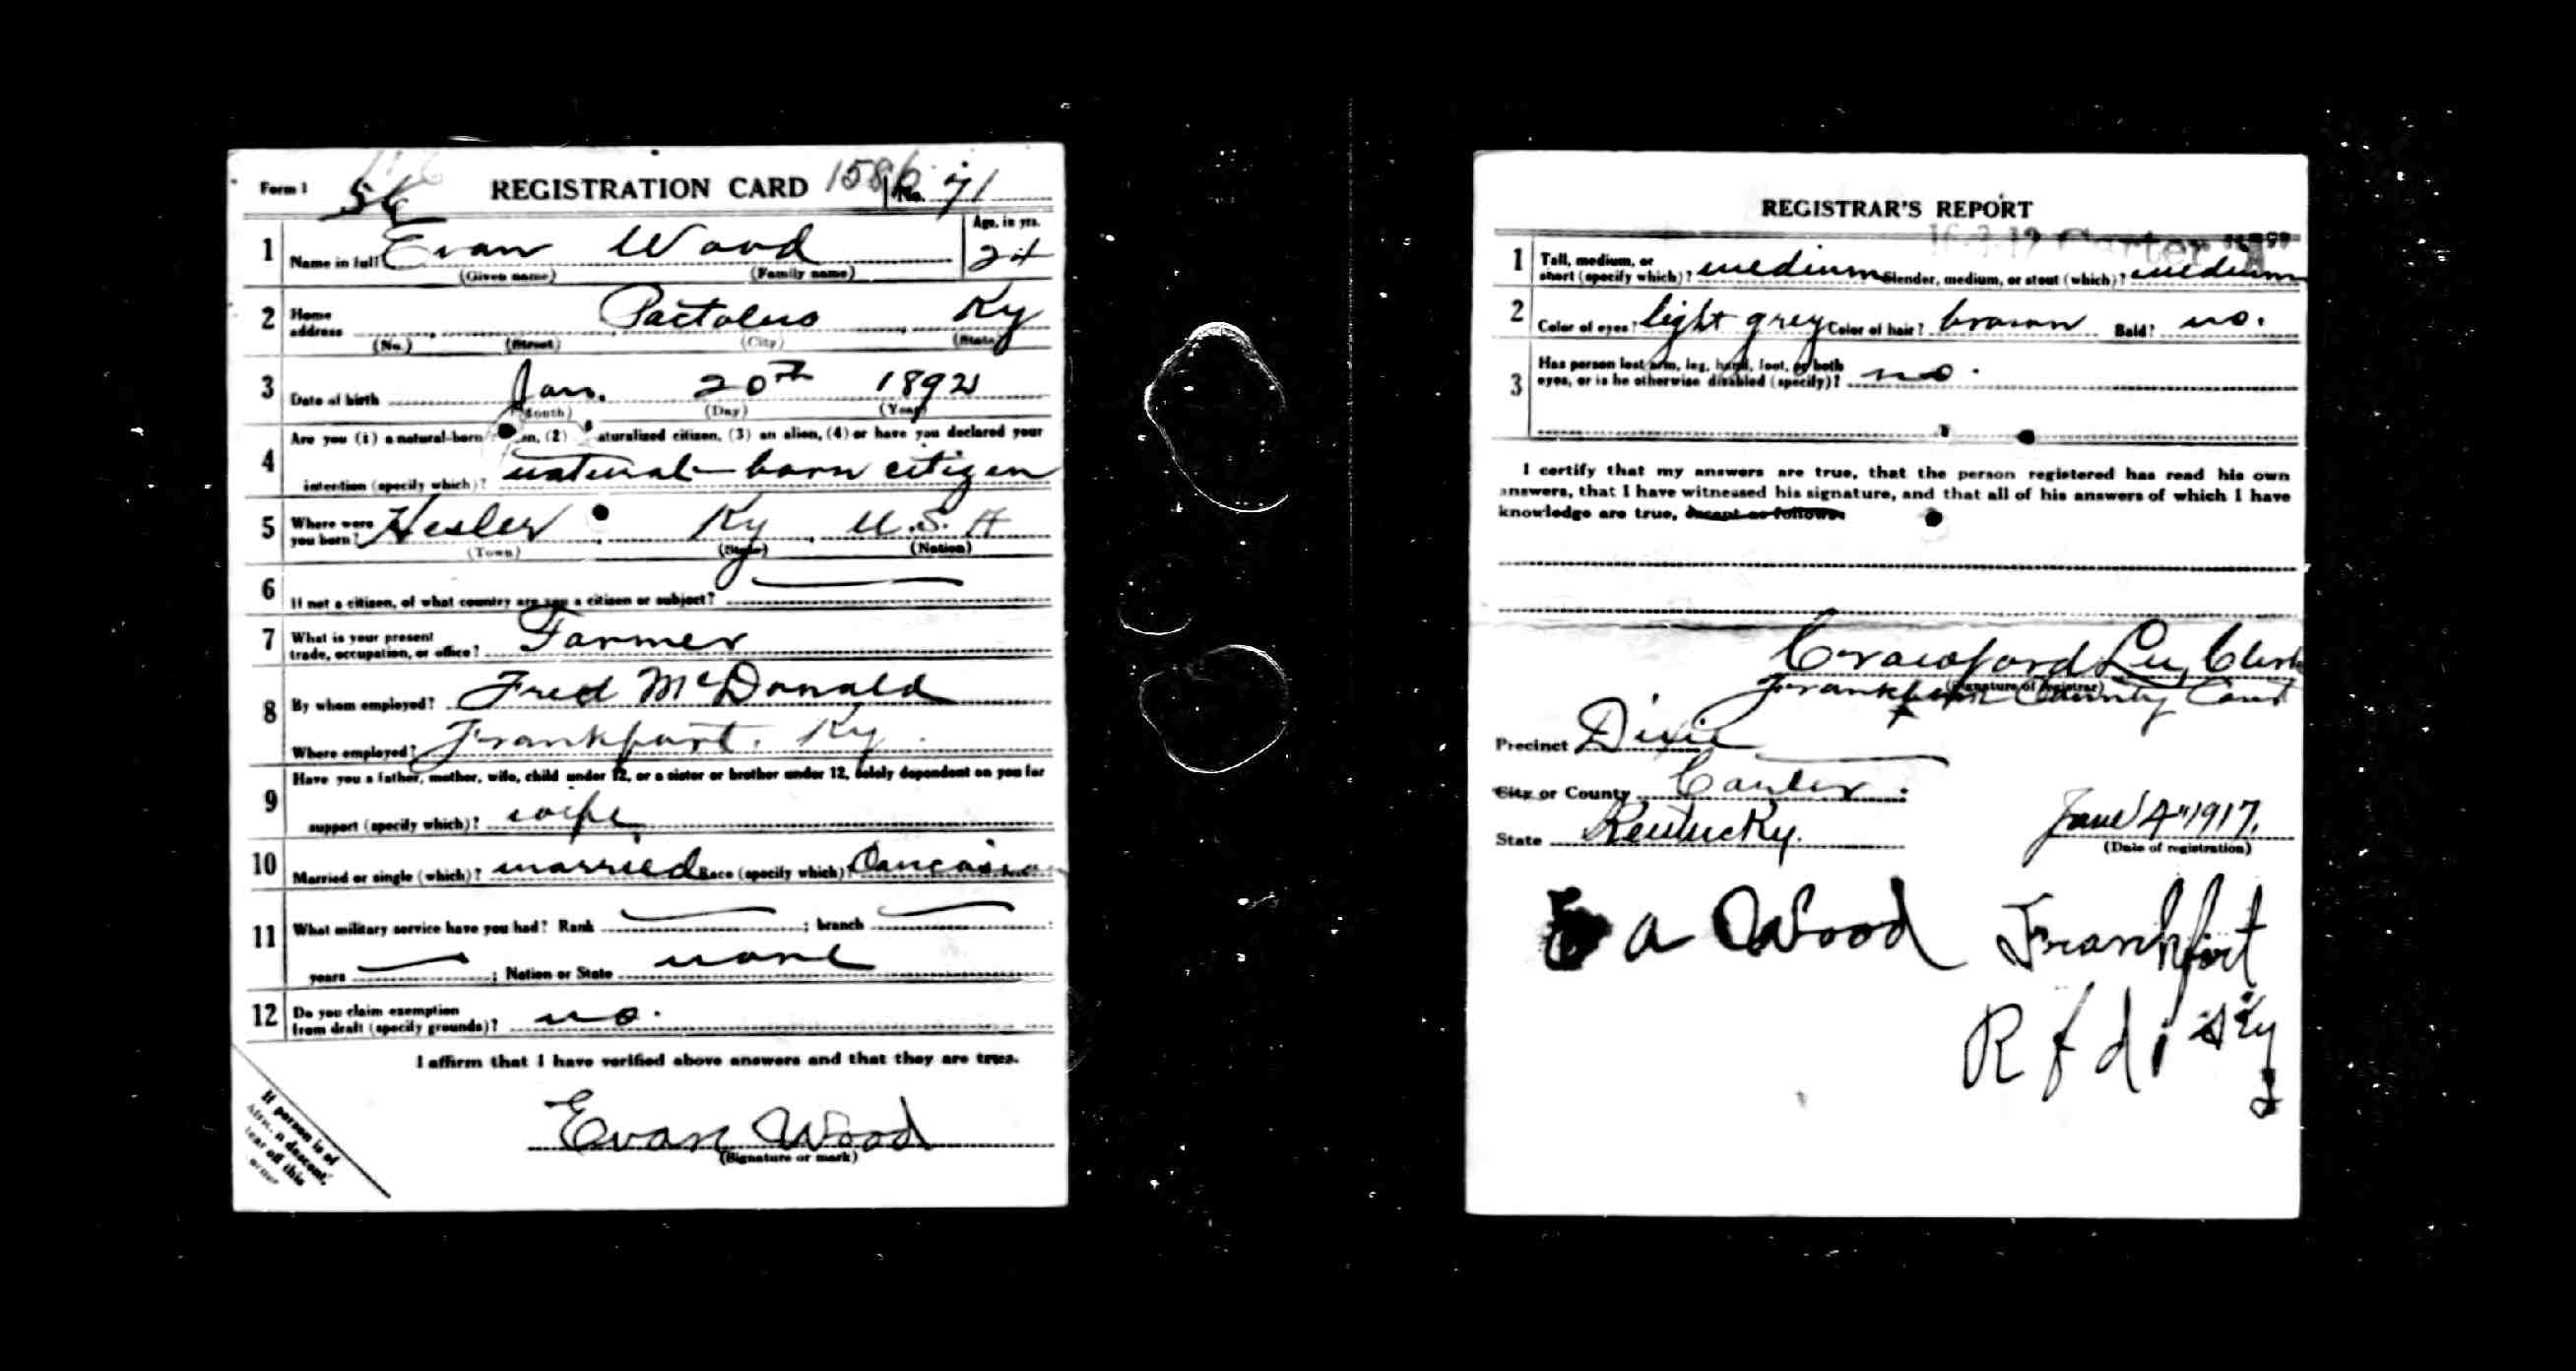 Form 1 REGISTRATION CARD 1586 No. 71
1 Name in full Evan Wood Age, in yrs. 24
(Given name) (Family name)
2 Home address Pactolus Ky
(No.) (Street) (City) (State)
3 Date of birth Jan. 20th 1892
(Month) (Day) (Year)
4 Are you (1) a natural-born en, (2) aturalized citizen, (3) an alien, (4) or have you declared your
intention (specify which)? natural-born citizen
5 Where were you born? Hesler Ky U.S.A
(Town) (State) (Nation)
6 If not a citizen, of what country are you a citizen or subject?
7 What is your present
trade, occupation, or office? Farmer
8 By whom employed? Fred McDonald
Where employed? Frankfort. Ky.
9 Have you a father, mother, wife, child under 12, or a sister or brother under 12, solely dependent on you for
support (specify which)? wife
10 Married or single (which)? married Race (specify which)? Caucasian
11 What military service have you had? Rank ; branch
years ; Nation or State none
12 Do you claim exemption
from draft (specify grounds)? no.
I affirm that I have verified above answers and that they are true.
Evan Wood
(Signature or mark)
If person is of
n descent,
tear off this
corner
REGISTRAR'S REPORT
1 Tall, medium, or
short (specify which)? medium Slender, medium, or stout (which)? medium
2 Color of eyes? light grey Color of hair? brown Bald? no.
3 Has person lost arm, leg, hand, foot, or both
eyes, or is he otherwise disabled (specify)? no.
I certify that my answers are true, that the person registered has read his own
answers, that I have witnessed his signature, and that all of his answers of which I have
knowledge are true, except as follows:
Crawford Lee, Clerk
(Signature of registrar)
Frankfort County Court
Precinct Dixie
City or County Carter.
State Kentucky. June 4" 1917.
(Date of registration)
E a Wood Frankfort
R f d 1 Ky